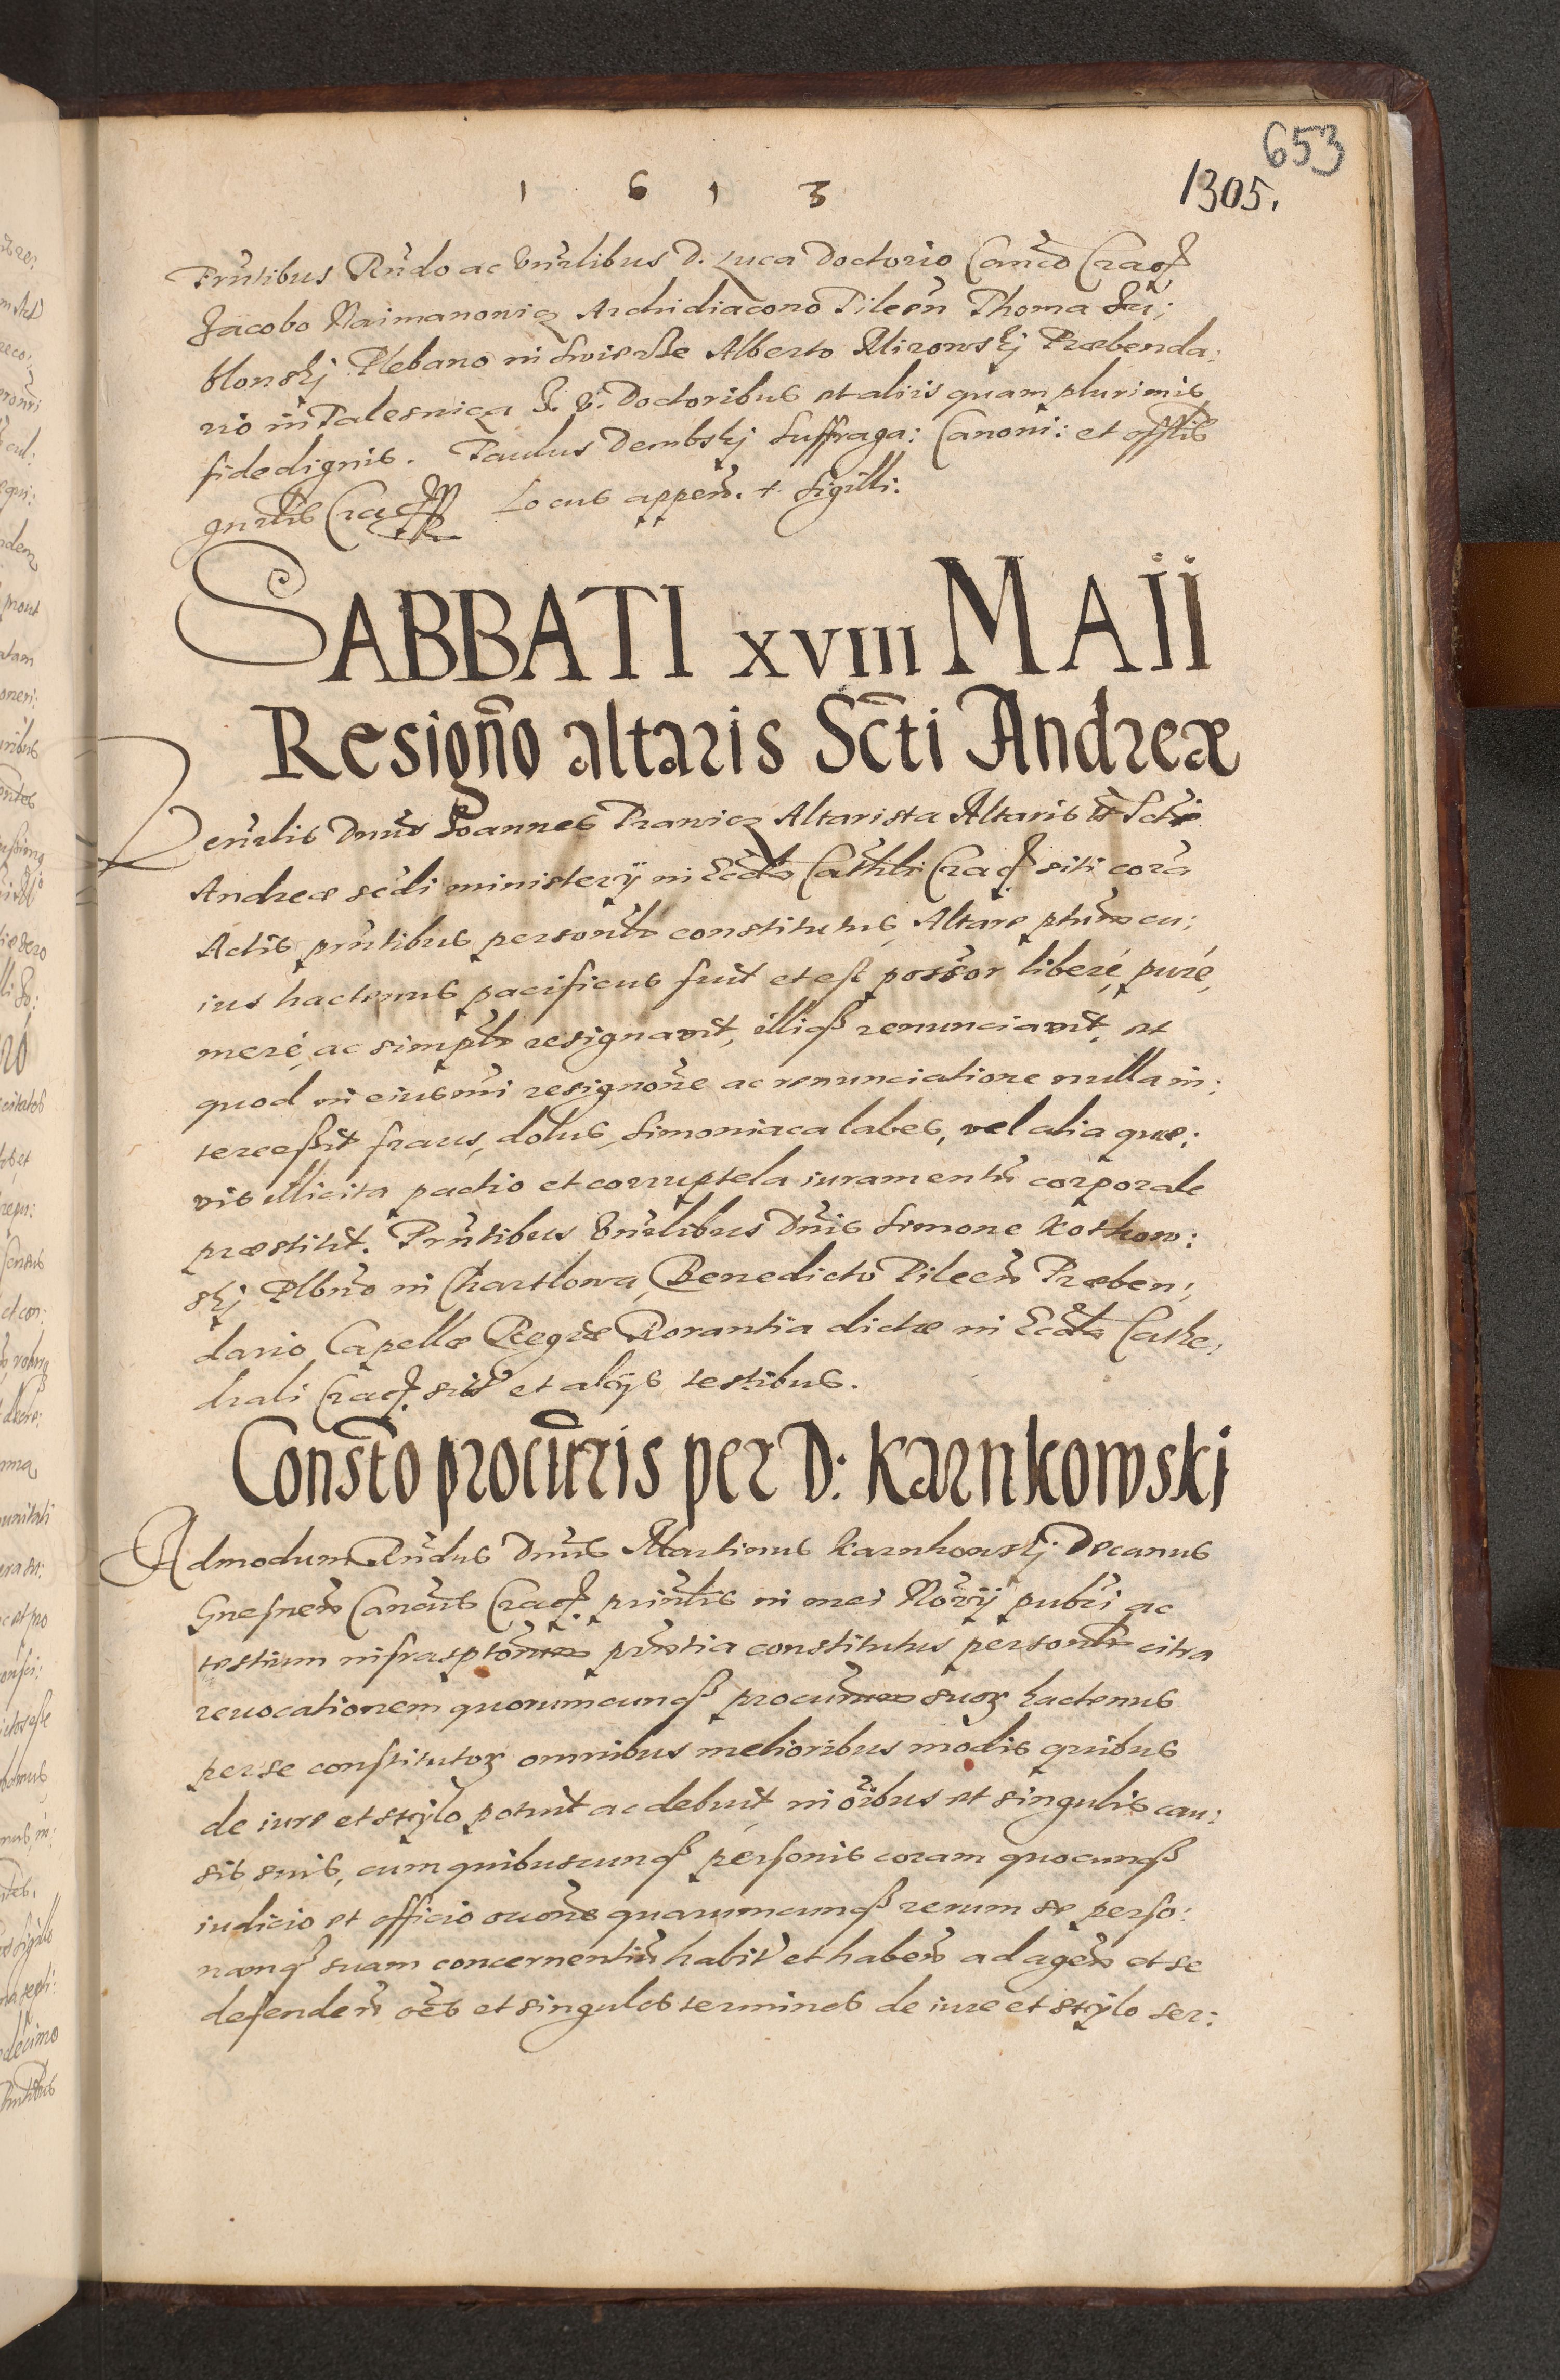 653
1 6 1 3
1305.
Prñtibus Rñdo ac Vnrlibus D. Luca Doctorio Canco Cracof
Jacobo Naimanowicz Archidiacono Pileñ Thoma
blonskj Plebano in Alberto Mirowskj Præbenda:
rio in Palesnica J. V. Doctoribus et aliis quam plurimis
fide dignis. Paulus Dembskj Suffraga: Canoni: et offlis
gnrlis Cracof Locus appeñ. + Sigilli:
SABBATI XVIII MAII
Resigño altaris Scti Andreæ
Venrlis Dnus Joannes Prawicz Altarista Altaris Scti
Andreæ scdi ministerij in Eccla Cathli Cracof siti corã
Actis prñtibus personlr constitutus, Altare ptum cu:
ius hactenus pacificus fuit et est possor liberé, puré,
meré, ac simplr resignavit, illiq renunciavit, et
quod in eiusmi resignone ac renunciatione nulla in:
tercessit fraus, dolus, Simoniaca labes, vel alia quæ:
vis illicita pactio et corruptela iuramentũ corporale
præstitit. Prñtibus Vnrlibus Dnis Simone Kotkow:
skj Plbno in Chartlowa, Benedicto Pileceñ Præben:
dario Capellæ Regiæ Rorantia dictæ in Eccla Cathe:
drali Cracof. sit et alijs testibus.
Constto procuris per D: Karnkowski
Admodum Rñdus Dnus Martinus Karnkowskj Decanus
Gnesneñ Cancus Cracof. prñtis in mei Norij publi ac
testium infrasptorum prñtia constitutus personlr citra
reuocationem quorumcunq procurum suoꝝ hactenus
per se constitutoꝝ omnibus melioribus modis quibus
de iure et stylo potuit ac debuit in oibus et singulis cau:
sis suis, cum quibuscunq personis coram quocunq
iudicio et officio occone quarumcunq rerum se perso:
namq suam concernentiũ habit et habeñ ad ageñ et se
defendeñ oes et singulos terminos de iure et stylo ser: